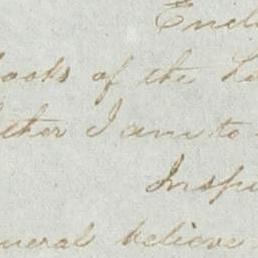 Encl
books of the
ther I am to
Inspe
neral believe